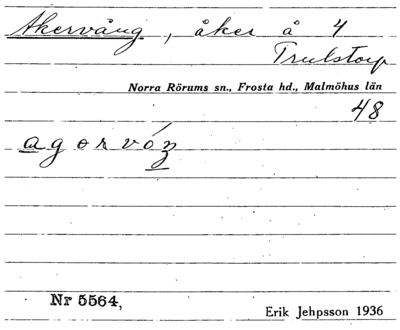 Akervång, åker å 4
Trulstorp
Norra Rörums sn., Frosta hd., Malmöhus län
48
agorvóŋ
Nr 5564,
Erik Jehpsson 1936